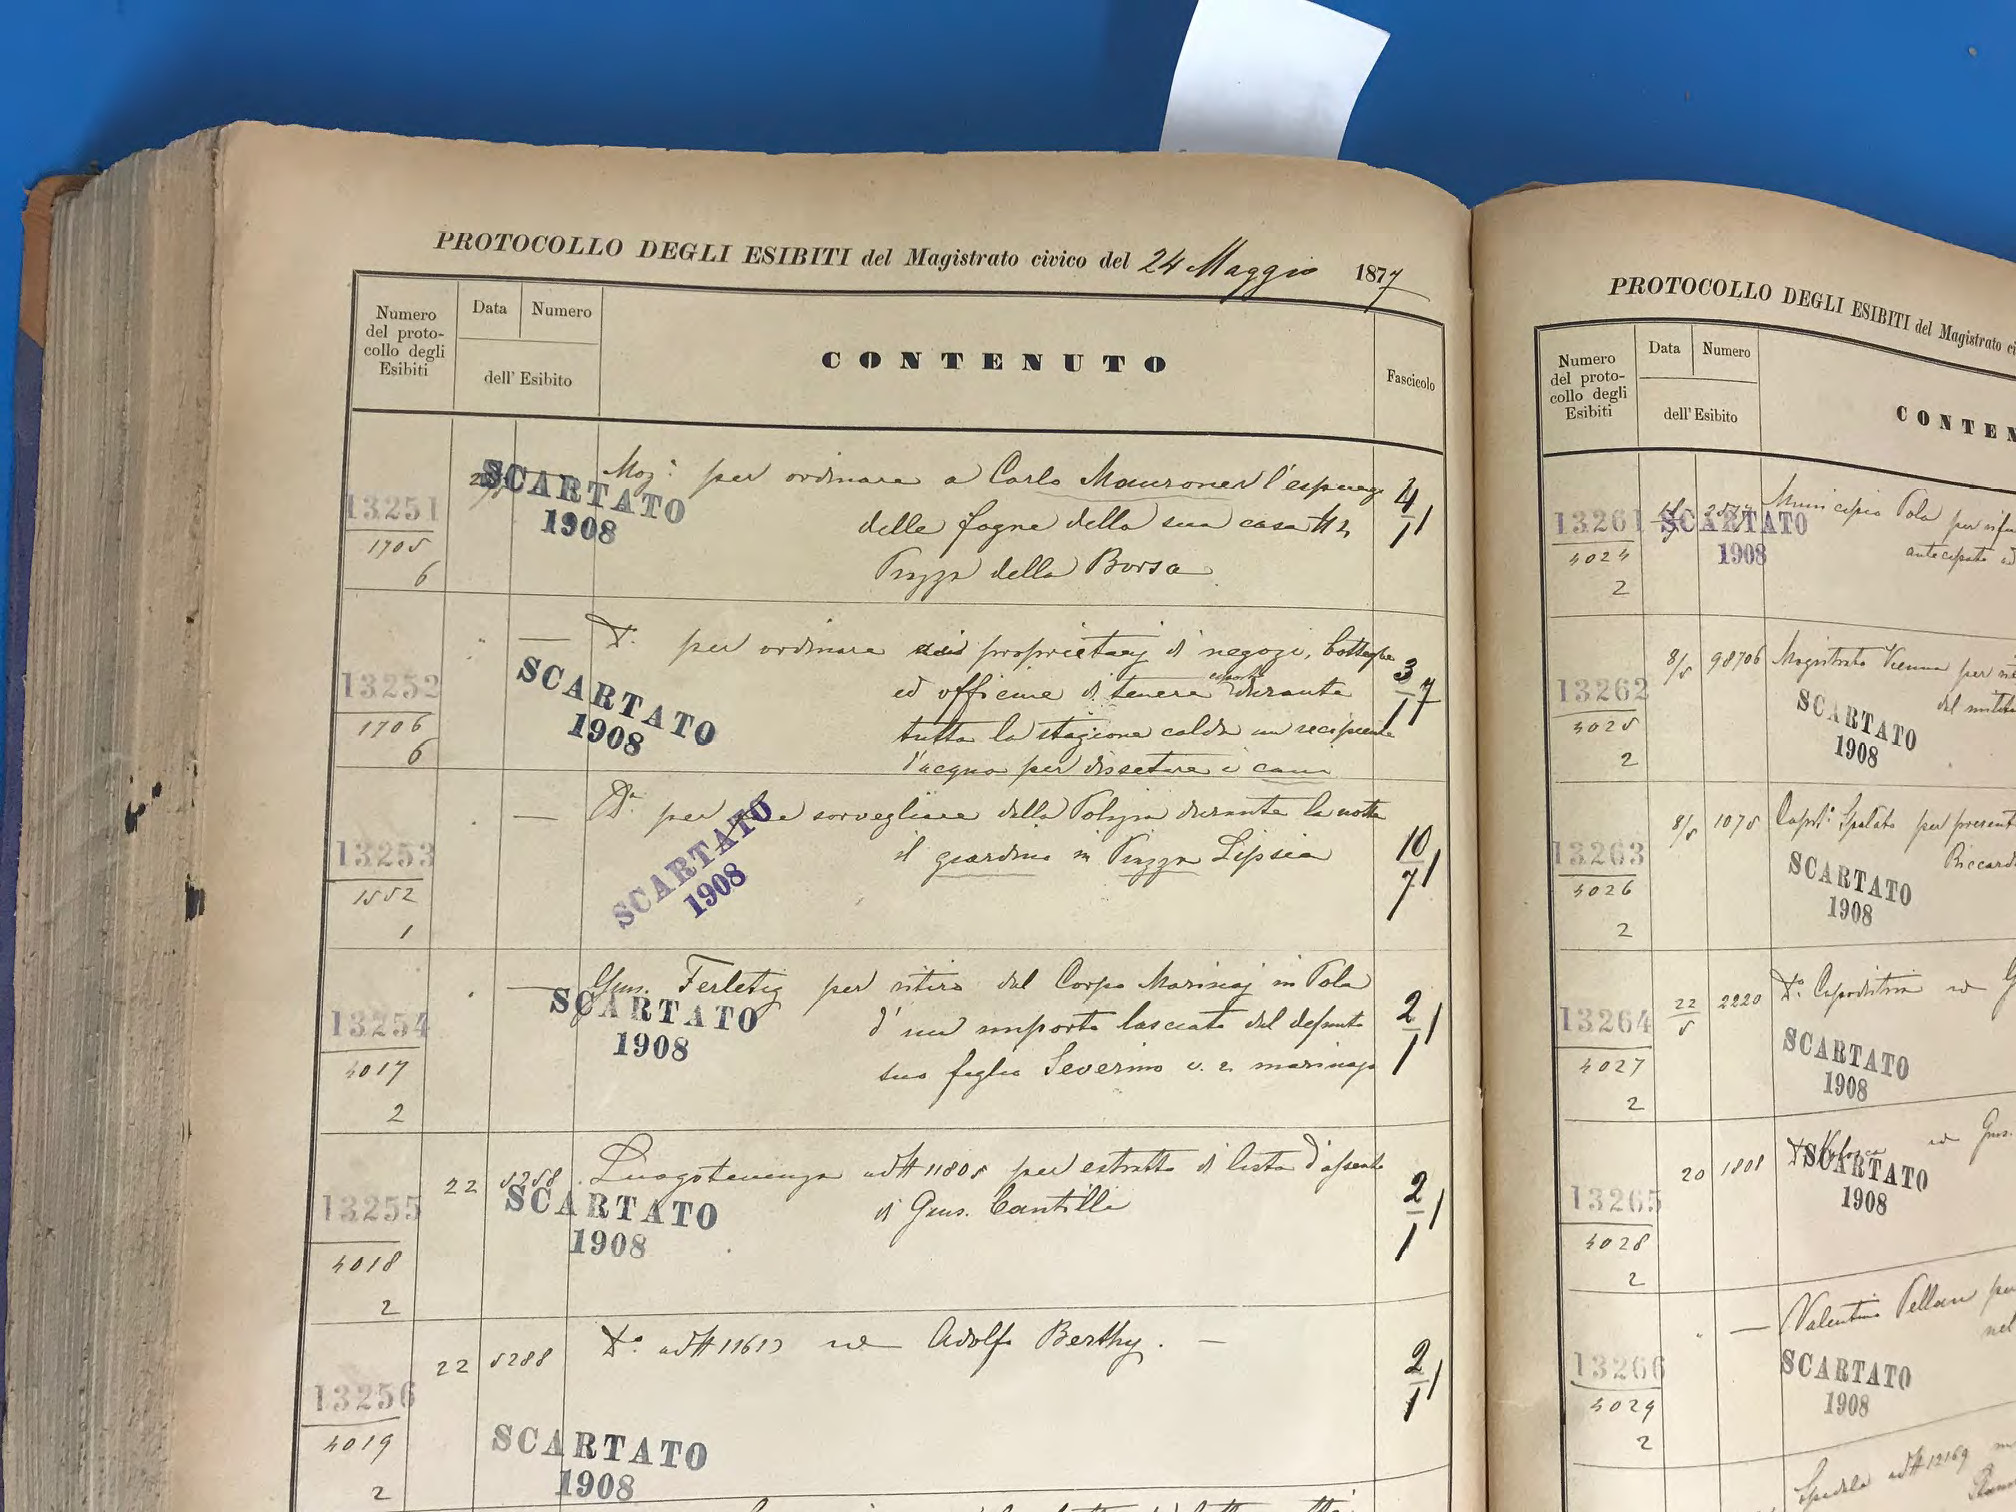 PROTOCOLLO DEGLI ESIBITI del Magistrato civico del 24 Maggio 1877
Numero del proto- collo degli Esibiti
Data
Numero
dell' Esibito
CONTENUTO
Fascicolo
13251
1705
6
SCARTATO
1908
per ordinare a Carlo
delle fogne della sua casa # 2
Piazza della Borsa
4/1
13252
1706
6
—
SCARTATO
1908
per ordinare proprietarj di negozi, botteghe
ed officine di tenere durante
tutta la stagione calda un recipiente
d'acqua per dissetare i cani
3/7
13253
1552
1
—
SCARTATO
1908
per sorvegliare dalla Polizia durante la notte
il giardino in Piazza Lipsia
10/7
13254
4017
2
—
SCARTATO
1908
Gius. Ferletig per ritiro dal Corpo Marinaj in Pola
d' un importo lasciato dal defunto
suo figlio Severino marinajo
2/1
13255
4018
2
22
5258
SCARTATO
1908
Luogotenenza ad # 11805 per estratto di lista d'assento
di Gius. Cantilli
2/1
13256
4019
2
22
5288
SCARTATO
1908
ad # 11613 Adolfo Berthy. —
2/1
PROTOCOLLO DEGLI ESIBITI del Magistrato ci
Numero del proto- collo degli Esibiti
Data
Numero
dell' Esibito
CONTEN
13261
4024
2
SCARTATO
1908
Municipio Pola per
antecipate
13262
4025
2
8/5
98706
Magistrato Vienna per
SCARTATO
1908
13263
4026
2
8/5
1075
Spalato per present
Riccard
SCARTATO
1908
13264
4027
2
22/5
2220
Capodistria
SCARTATO
1908
13265
4028
2
20
1808
Gius.
SCARTATO
1908
13266
4029
2
—
Valentino
nel
SCARTATO
1908
ad # 12169